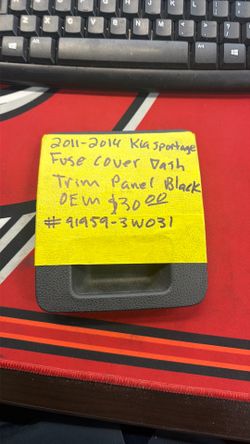 2011-2014 Kia sportage
Fuse cover Dash
Trim Panel Black
OEM $30.00
#91959-3W031